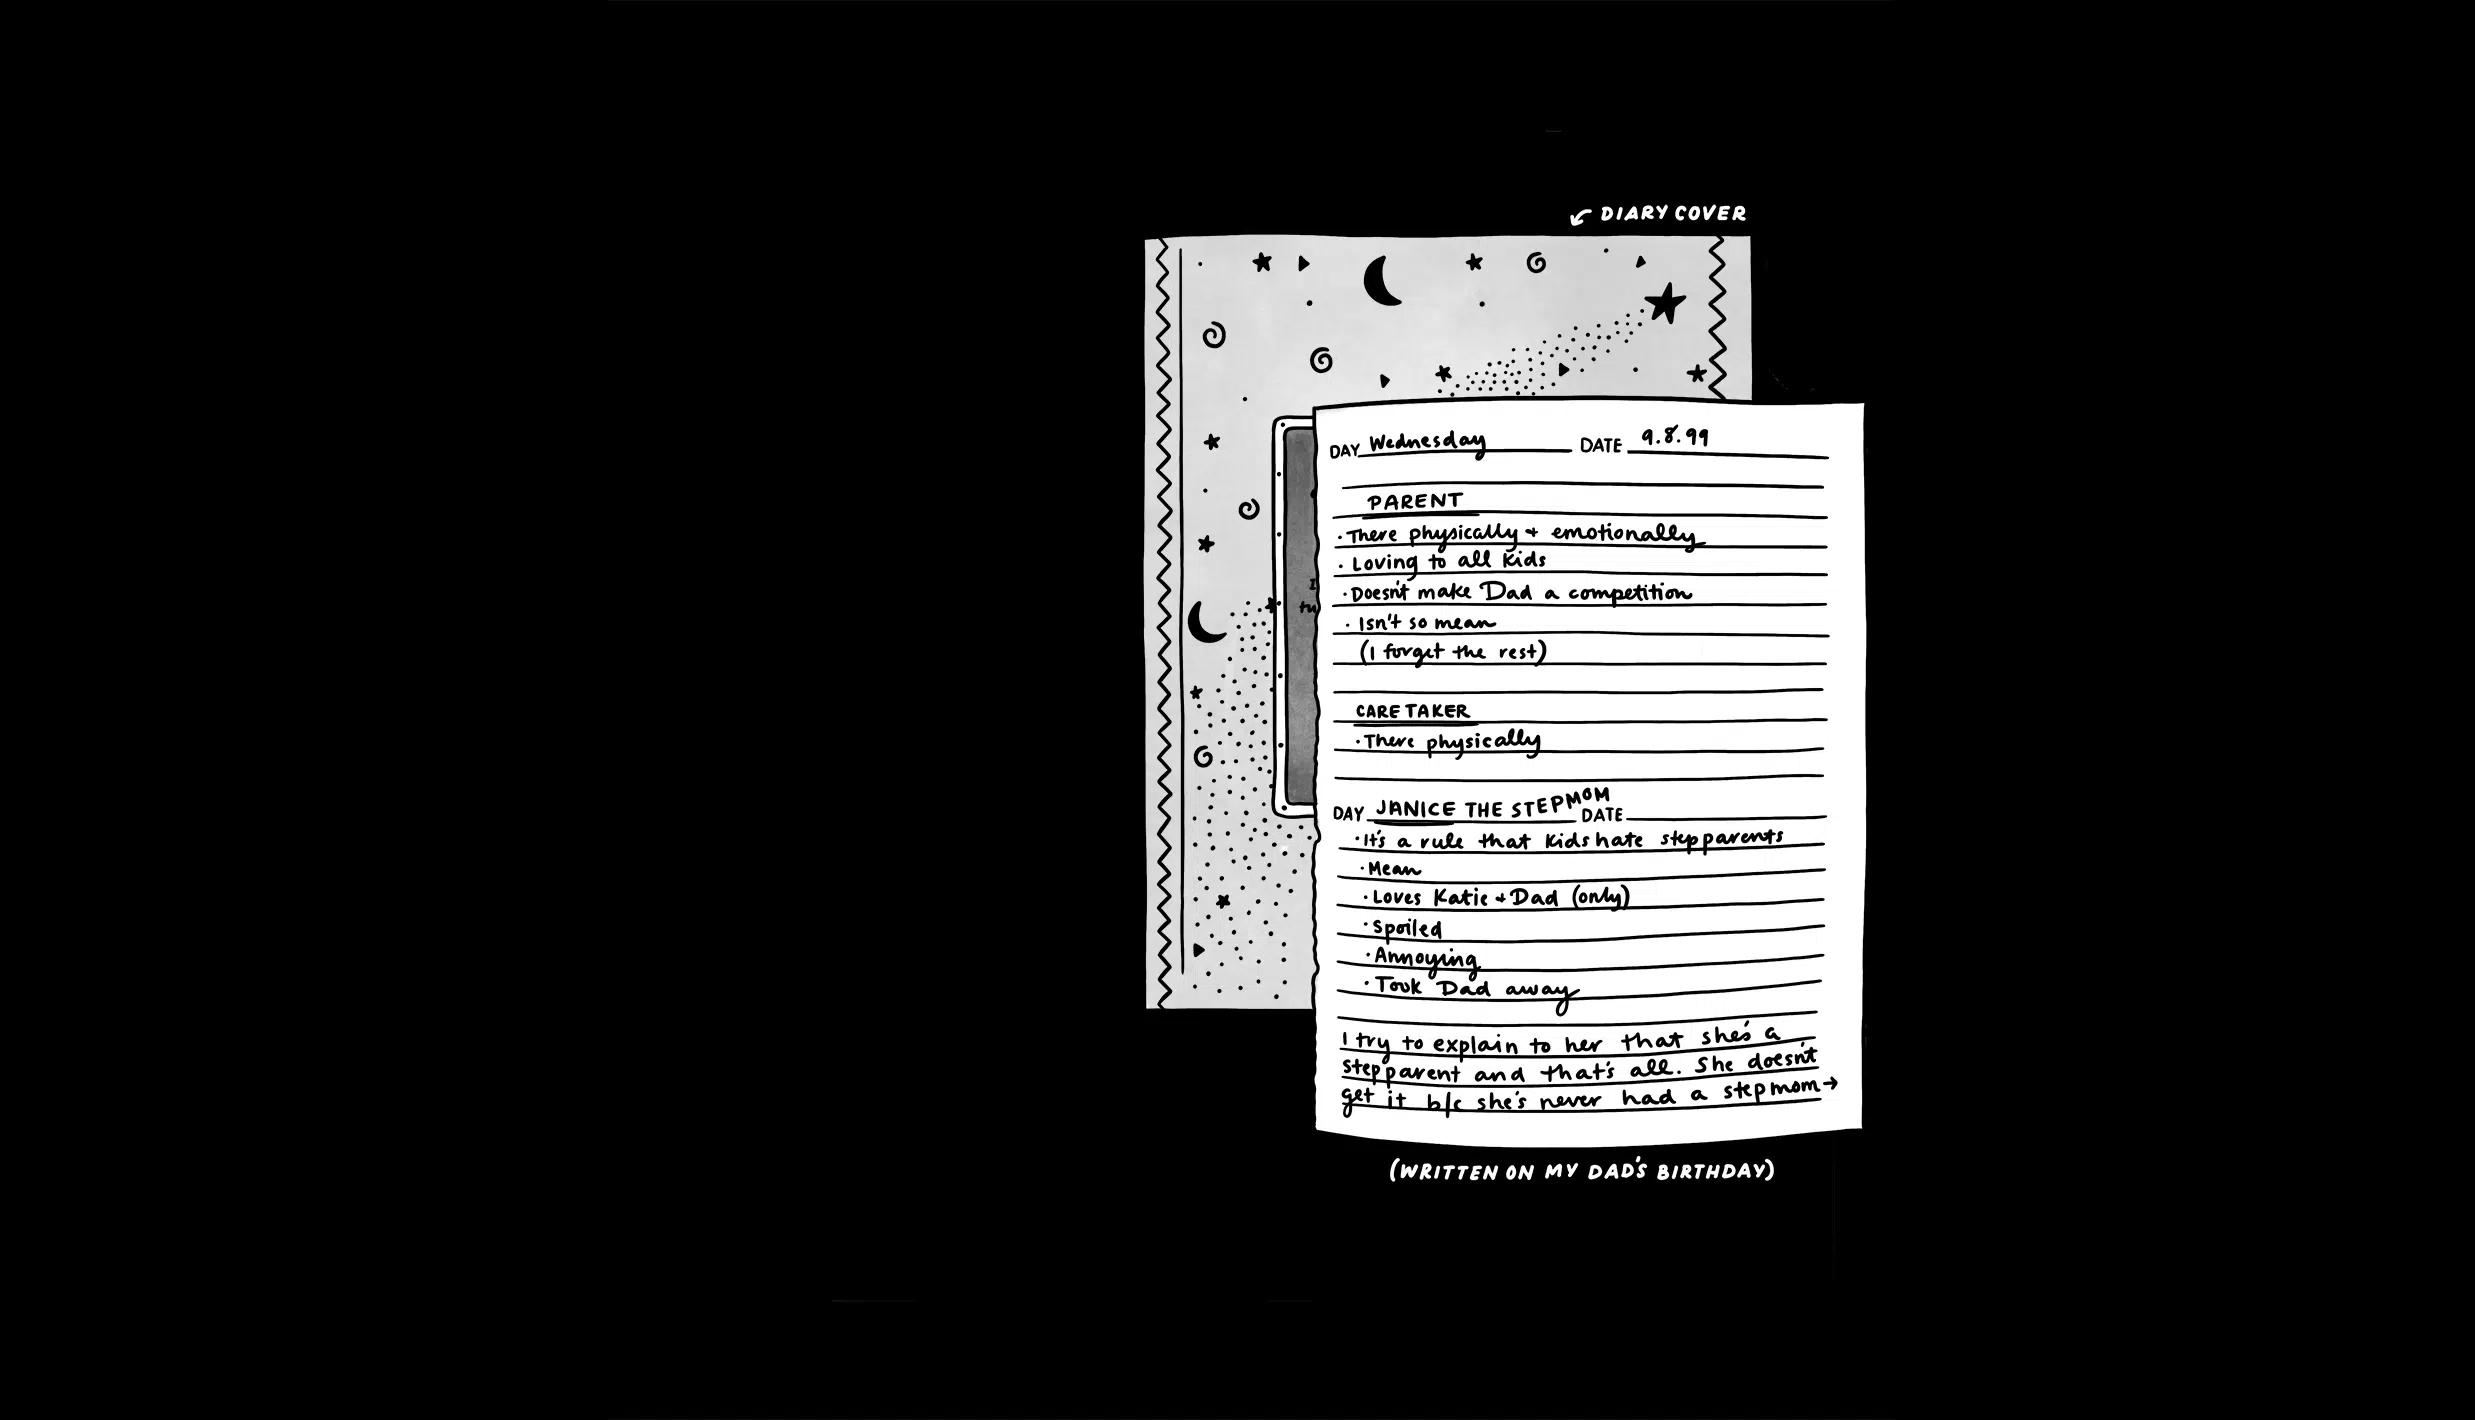 DIARY COVER
DAY Wednesday DATE 9.8.99
PARENT
· There physically + emotionally
· Loving to all kids
· Doesn't make Dad a competition
· Isn't so mean
(I forget the rest)
CARE TAKER
· There physically
DAY JANICE THE STEPMOM DATE
· It's a rule that kids hate stepparents
· Mean
· Loves Katie + Dad (only)
· Spoiled
· Annoying
· Took Dad away
I try to explain to her that she's a
stepparent and that's all. She doesn't
get it b/c she's never had a stepmom →
(WRITTEN ON MY DAD'S BIRTHDAY)